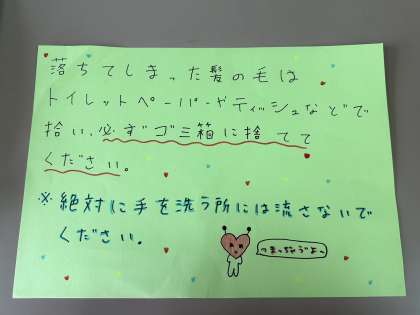 落ちてしまった髪の毛は
トイレットペーパーやティッシュなどで
拾い、必ずゴミ箱に捨てて
ください。
※絶対に手を洗う所には流さないで
ください。
つまっちゃうよっ